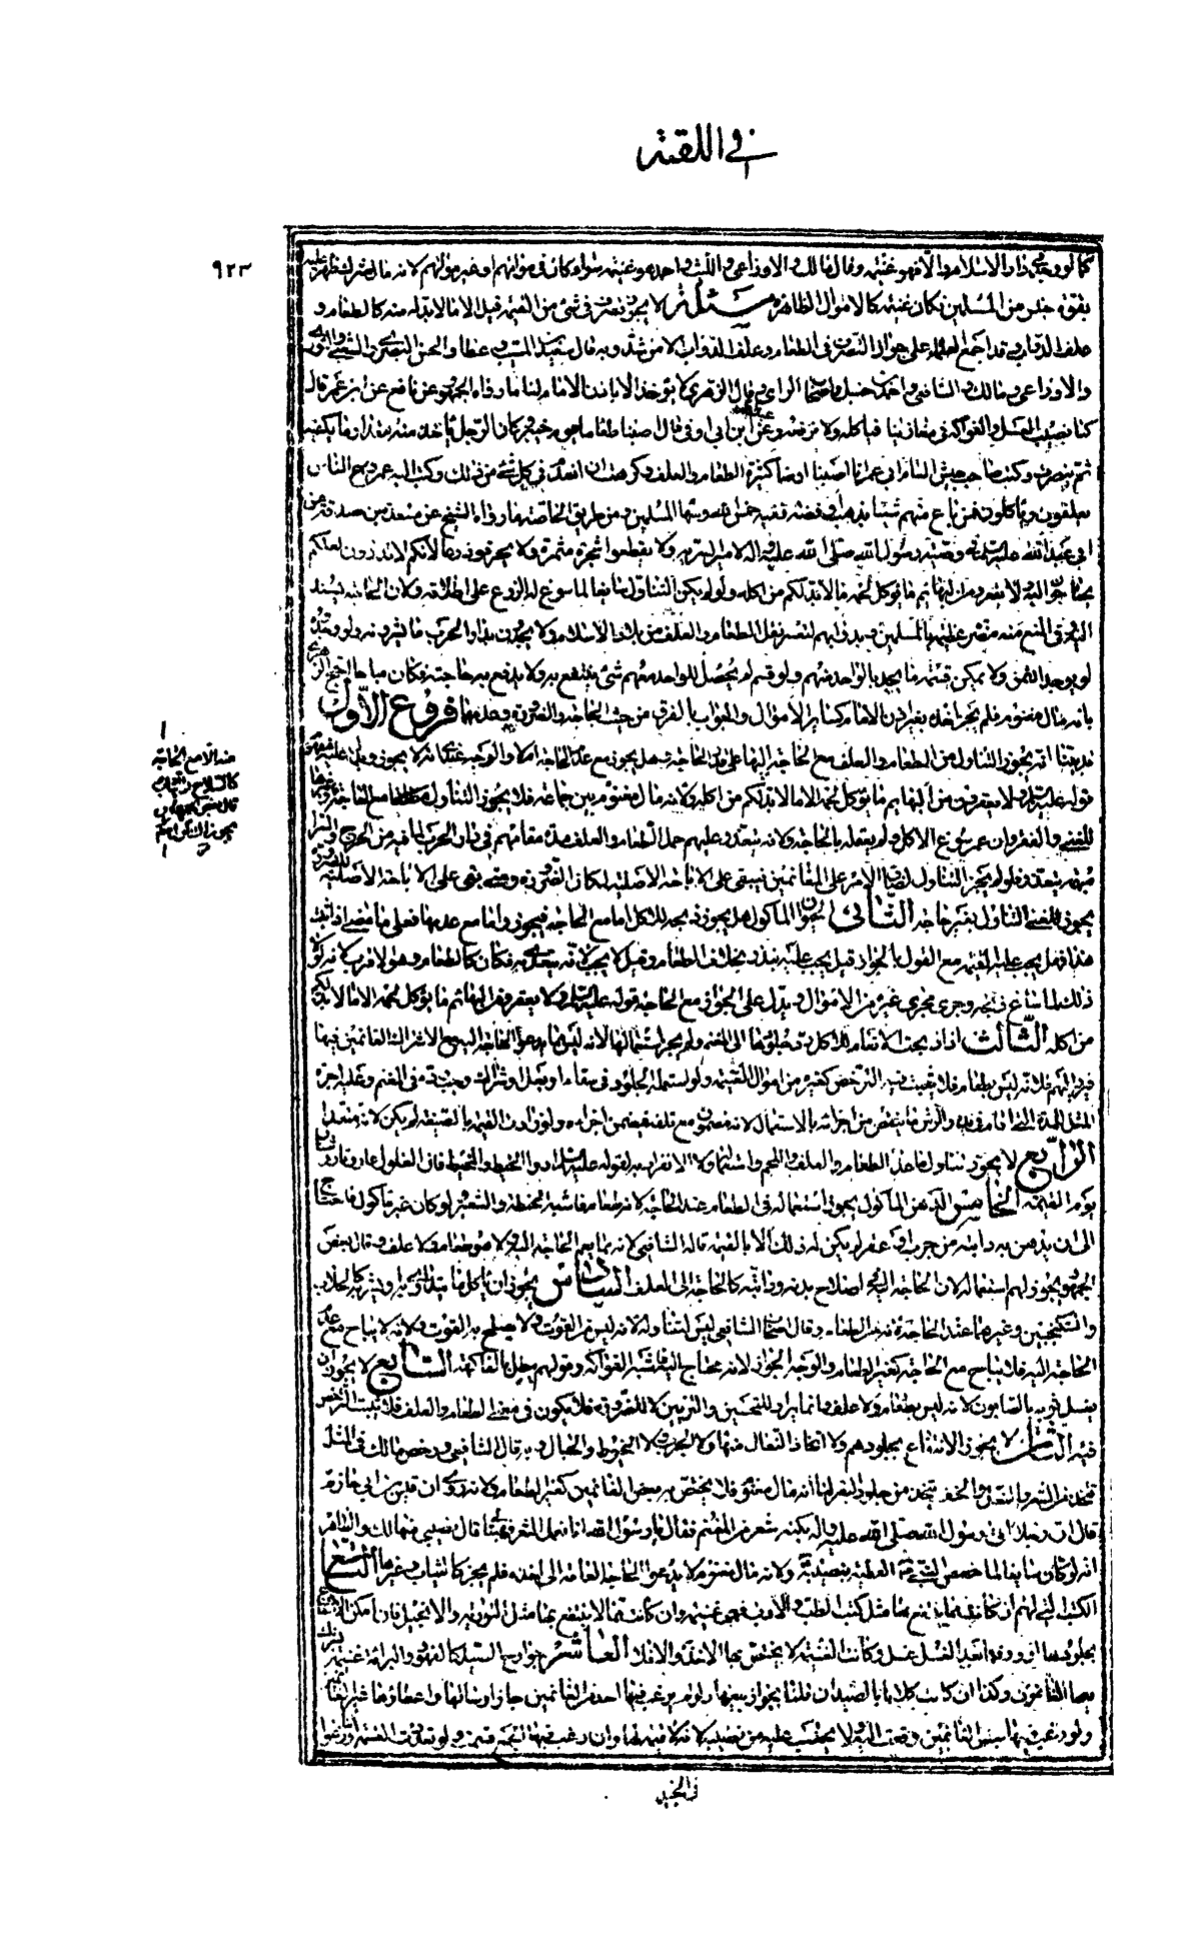 في اللقمة
٩٢٣
كما لو وجد في دار الاسلام والا فهو غنيمة وقال مالك والاوزاعي والليث واحد هو غنيمة سواء كان في مواتهم او غير مواتهم لانه مال مشرك ظهر عليه
بقوة جند من المسلمين فكان غنيمة كالاموال الظاهرة مسئلة لا يجوز التصرف في شئ من الغنيمة قبل الا ما لا بد له منه كالطعام و
علف الدواب وقد اجمع العلماء على جواز التصرف في الطعام وعلف الدواب الا من شذ وبه قال سعيد بن المسيب وعطا والحسن البصري والشعبي والثوري
والاوزاعي ومالك والشافعي واحمد بن حنبل واصحاب الراي وقال الزهري لا يؤخذ الا باذن الامام لنا ما رواه الجمهور عن نافع عن ابن عمر قال
كنا نصيب العسل والفواكه في مغازينا فناكله ولا نرفعه وعن ابن ابي اوفى قال اصبنا طعاما يوم خيبر وكان الرجل ياخذ منه مقدار ما يكفيه
ثم ينصرف وكتب صاحب جيش الشام الى عمر انا اصبنا ارضا كثيرة الطعام والعلف وكرهت ان اتقدم في شئ من ذلك وكتب اليه عمر دع الناس
يعلفون وياكلون فمن باع منهم شيئا بذهب او فضة ففيه خمس الله وسهام المسلمين ومن طريق الخاصة ما رواه الشيخ عن مسعدة بن صدقة عن
ابي عبد الله عليه السلام في وصية رسول الله صلى الله عليه واله لامير السرية ولا يقطعوا شجرة مثمرة ولا يحرقوا زرعا لانكم لا تدرون لعلكم
تحتاجون اليه ولا تعقروا من البهائم ما يؤكل لحمه الا ما لا بد لكم من اكله ولو لم يكن التناول سايغا لما سوغ له الزرع على اطلاقه ولان الحاجة تشتد
اليه وفي المنع منه مضرة عظيمة بالمسلمين وبدوابهم لتعسر نقل الطعام والعلف من بلاد الاسلام ولا يجدون بدار الحرب ما يشترونه ولو وجدوه
لم يوجد الثمن ولا يمكن قسمة ما يجده الواحد منهم ولو قسم لم يحصل للواحد منهم شئ ينتفع به ولا يدفع به حاجته فكان مباحا احتج الزهري
بانه مال مغنوم فلم يجز اخذه بغير اذن الامام كساير الاموال والجواب بالفرق من حيث الحاجة والضرورة وعدمها فروع الاول
قد بينا انه يجوز التناول من الطعام والعلف مع الحاجة اليها على قدر الحاجة فهل يجوز مع عدم الحاجة ام لا والوجه عندنا انه لا يجوز ويدل عليه
قوله عليه السلام لا تعقروا من البهائم ما يؤكل لحمه الا ما لا بد لكم من اكله ولانه مال مغنوم بين جماعة فلا يجوز التناول
للغني والفقير وان عمر سوغ الاكل ولم يعلله بالحاجة ولانه يتعذر عليهم حمل الطعام والعلف مدة مقامهم في دار الحرب لما فيه من الحرج
يجوز للغني التناول بغير حاجة الثاني الحيوان الماكول هل يجوز ذبحه للاكل اما مع الحاجة فيجوز واما مع عدمها فعلى ما مضى اذا ثبت
هذا فهل يجب عليه القيمة مع القول بالجواز قيل يجب عليه لندوره بخلاف الطعام وقيل لا يجب لانه فكان كالطعام وهو الاقرب لانه لو
ذلك لما شاع ذبحه وجرى مجرى غيره من الاموال ويدل على الجواز مع الحاجة قوله عليه السلام ولا يعقروا من البهائم ما يؤكل لحمه الا ما لا بد لكم
من اكله الثالث اذا ذبحت الانعام للاكل ردت جلودها الى المغنم ولم يجز استعمالها لانه ليس مما يدعو الحاجة اليه مع الاشتراك الغانمين فيها
فيرد اليهم فلانه ليس بطعام فلا يثبت فيه الترخص كغيره من اموال الغنيمة ولو استعمل الجلود في سقاء او نعل او شراك وجب رده في المغنم وعليه اجرة
المثل لمدة استخدامه وارش ما ينقص من اجزائه بالاستعمال لانه مضمون مع تلفه فيضمن اجزاءه ولو زادت القيمة بالصنعة لم يكن لانه متعد
الرابع لا يجوز تناول ما عدا الطعام والعلف واللحم واستعمالها ولا الانفراد به لقوله عليه السلام ادوا الخيط والمخيط فان الغلول عار ونار
يوم القيمة الخامس الدهن الماكول يجوز استعماله في الطعام عند الحاجة لانه طعام فاشبه الحنطة والشعير ولو كان غير ماكول فاحتاج
الى ان يدهن به دابته من جرب او عقر لم يكن له ذلك الا بالقيمة قاله الشافعي لانه مما يعم الحاجة اليه ولا هو طعام ولا علف وقال بعض
الجمهور يجوز لهم استعماله لان الحاجة اليه في اصلاح بدنه ودابته كالحاجة الى العلف السادس يجوز ان ياكل ما يتداوى به ويشربه كالجلاب
والسكنجبين وغيرهما عند الحاجة لانه من الطعام وقال اصحاب الشافعي ليس له تناوله لانه ليس من القوت ولا يصلح به القوت ولانه لا يباح مع عدم
الحاجة اليه فلا يباح مع الحاجة كغير الطعام والوجه الجواز لانه محتاج اليه فاشبه الفواكه وقولهم يبطل بالفاكهة السابع لا يجوز ان
يغسل ثوبه بالصابون لانه ليس بطعام ولا علف وانما يراد للتحسين والتزيين لا للضرورة فلا يكون في معنى الطعام والعلف فلا يثبت الترخص
فيه الثامن لا يجوز الانتفاع بجلودهم ولا اتخاذ النعال منها ولا الجرب ولا الخيوط والحبال وبه قال الشافعي ورخص مالك في الحبل
يتخذ من الشعر والنعل والخف يتخذ من جلود البقر لنا انه مال مغنوم فلا يختص به بعض الغانمين كغير الطعام ولانه روي ان قيس بن ابي حازم
قال ان رجلا اتى رسول الله صلى الله عليه واله بكبة شعر من المغنم فقال يا رسول الله انا نعمل الشعر فهبها قال نصيبي منها لك والظاهر
انه لو كان سايغا لما خصص النبي ص العطية بنصيبه ولانه مال مغنوم لا يدعو الحاجة العامة الى اخذه فلم يجز كالثياب وغيرها التاسع
الكتب التي لهم ان كان ينتفع بها مثل كتب الطب والادب فهو غنيمة وان كانت مما لا ينتفع بها مثل التورية والانجيل فان امكن الانتفاع
بجلودها او ورقها بعد الغسل غسل وكانت غنيمة لا يختص بها الاخذ والا فلا العاشر جوارح الصيد كالفهود والبزاة غنيمة يشترك
فيها الغانمون وكذا ان كانت كلابا بالصيد ان قلنا بجواز بيعها ولو لم يرغب فيها احد من الغانمين جاز ارسالها واعطاؤها غير الغانمين
ولو رغب فيها بعض الغانمين دفعت اليه ولا يحتسب عليه من نصيبه لانه لا قيمة لها وان رغب فيها الجميع قسمت ولو
هذا الامع الحاجة
كالسلاح والثياب
في الجيد